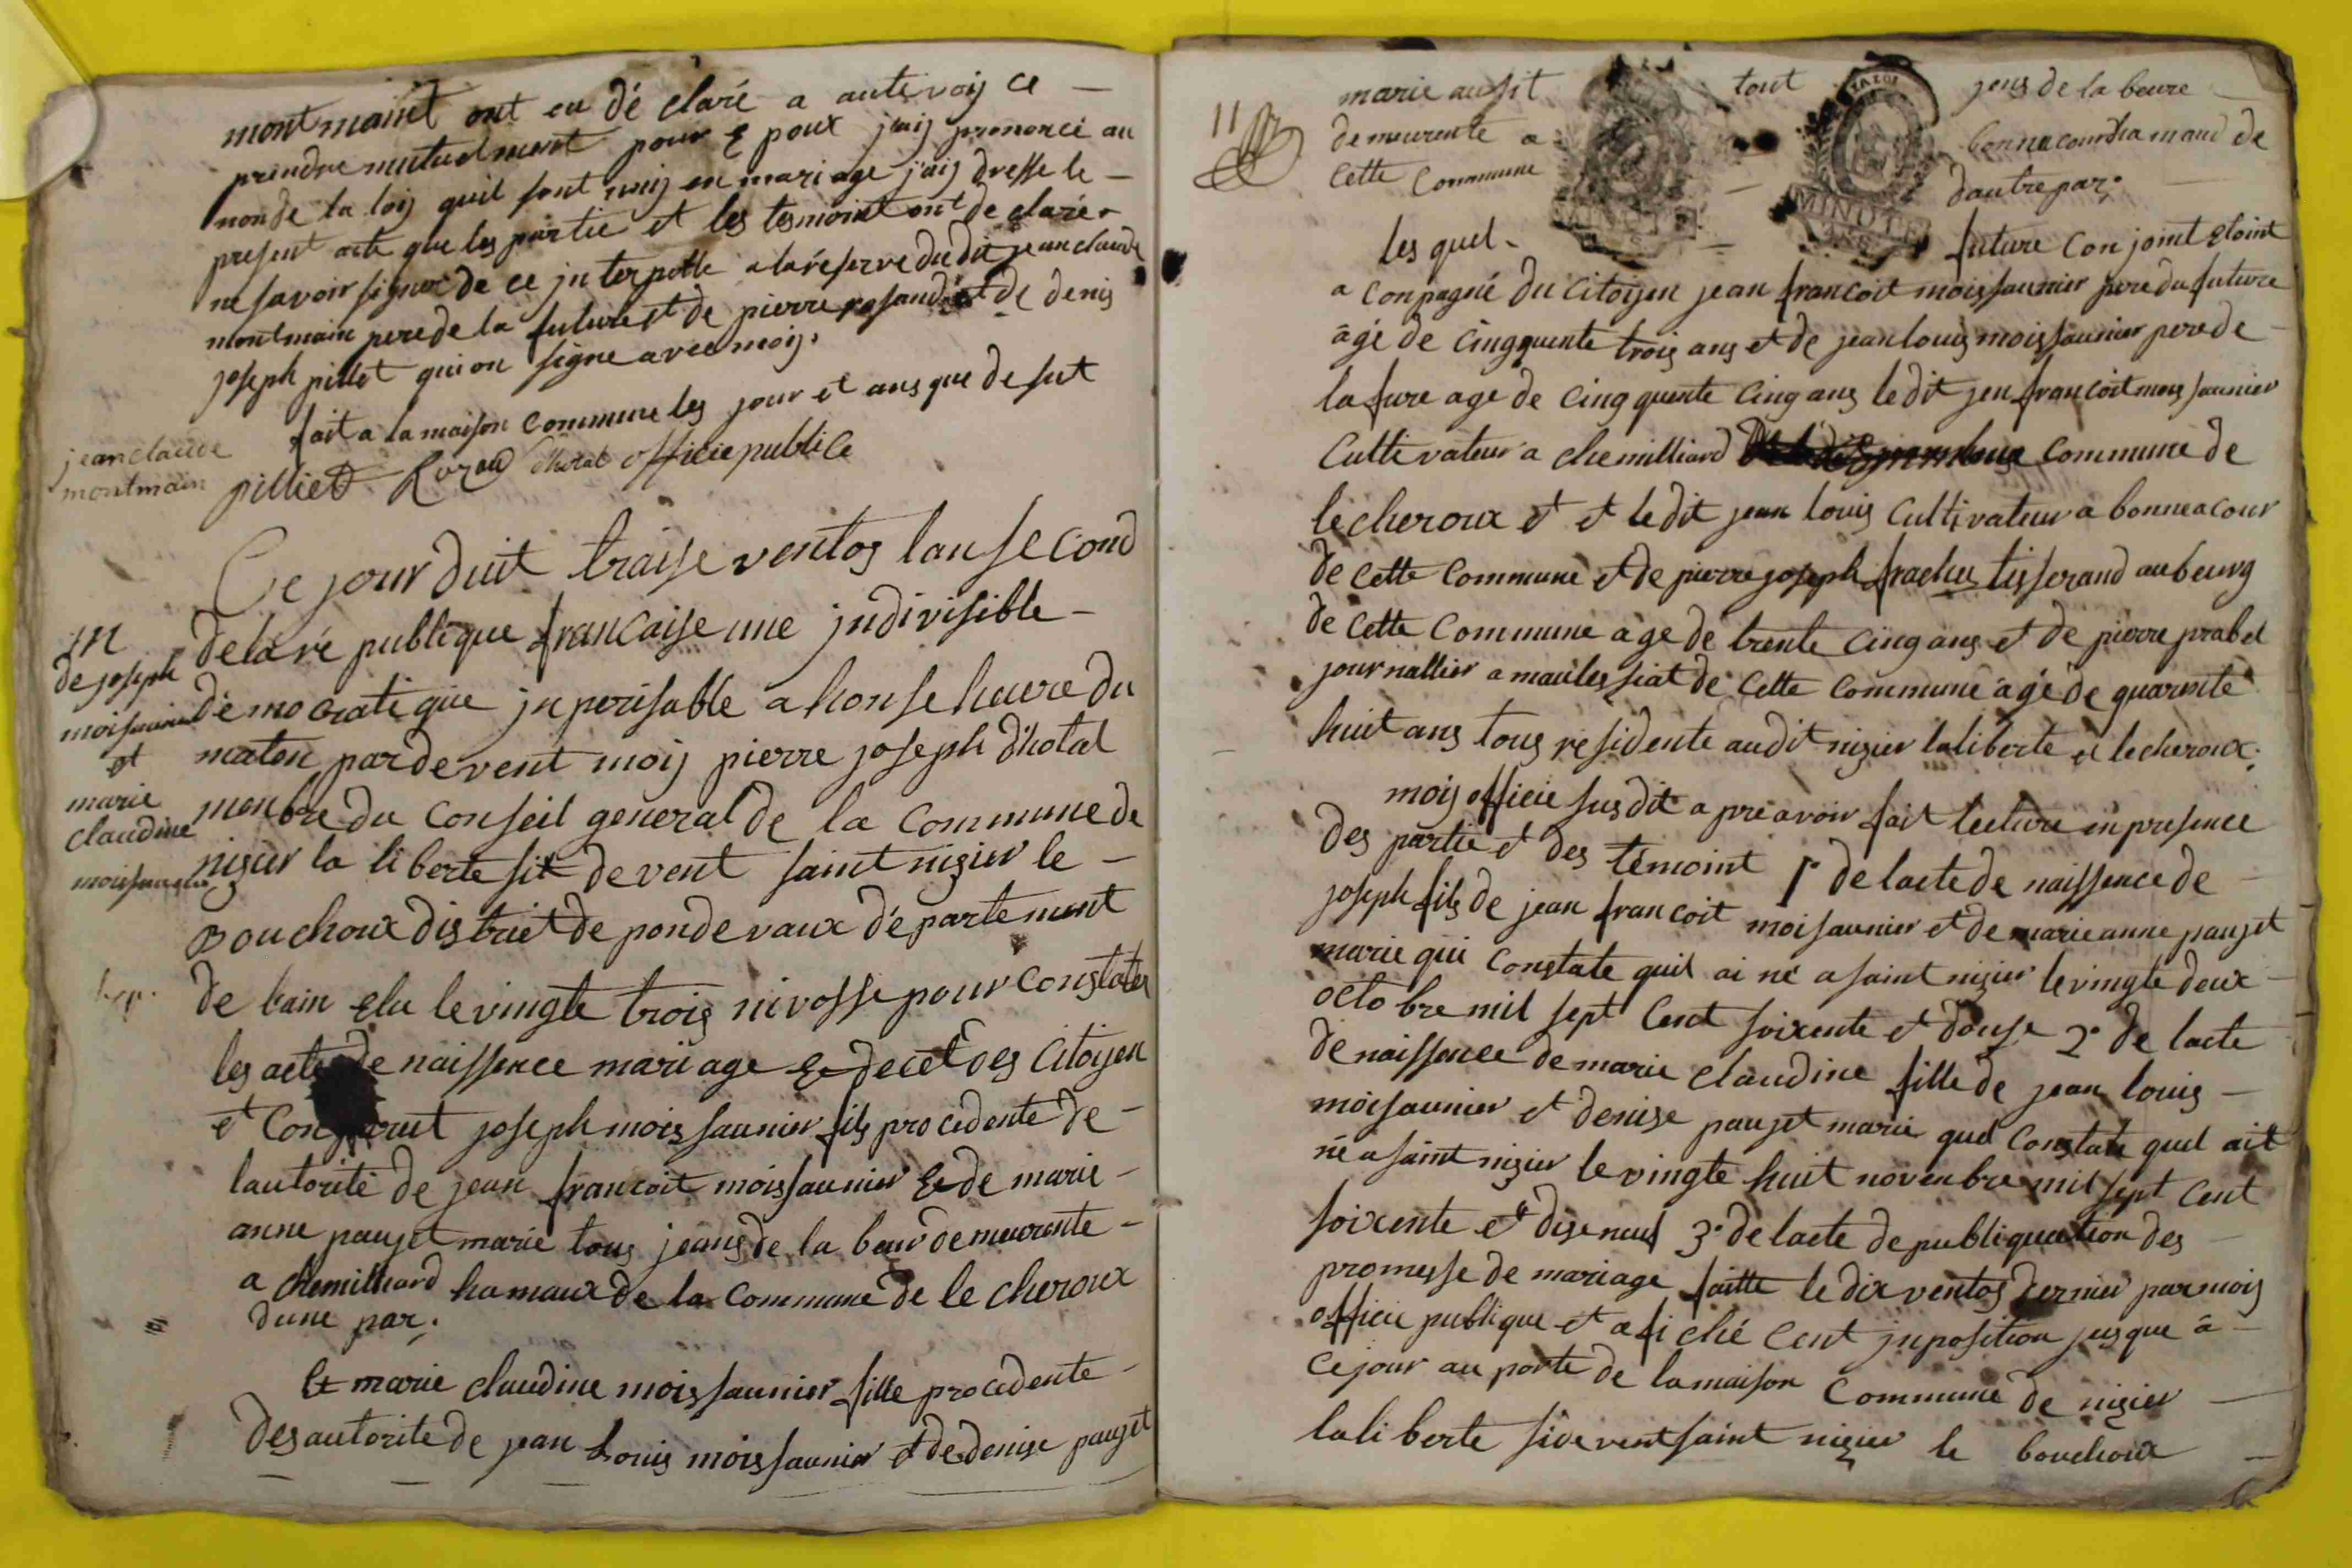 montmaint ont eu dé claré a autevoij ce
prendre mutuelment pour e poux j'aij prononcé au
non de la loij quil sont unij en mariage j'aij dresse le
present acte que les partie et les temoint ont de claré
ne savoir signer de ce jnterpelle a la réserve du dit jean claude
montmain pere de la future et de pierre rosand et de denis
joseph pillet qui on signe avec moij.
fait a la maison commune les jour et ans que de sut
jean claude
montmain
pilliet Rozand d'hotal officie publice
Ce jour duit traise ventos lan second
de la ré publique francaise une jndivisible
démocratique jnperisable a honse heure du
maten par devent moij pierre joseph d'hotal
menbre du conseil general de la commune de
nizier la liberte sit devent saint nizier le
Bouchoux district de pondevaux departement
de lain elu le vingte trois nivosse pour constater
les acte de naissence mariage & decet des citoijen
et Conparut joseph moissaunier fils procedente de
lautorité de jean francoit moissaunier & de marie
anne paujet marie tous jeans de la beur demeurente
a chemilliard hamaux de la commune de le cheroux
dune par.
Et marie claudine moissaunier fille procedente
des autorite de jean Louis moissaunier et de denise paujet
m
de joseph
moisaunier
et
marie
claudine
moisaunier
11
marie au sit tout jens de la beure
demeurente a bonnacour hamaud de
cette Commune dautre par.
les quel future conjoint etoint
a conpagné du citoijen jean francoit moissaunier pere du future
âgé de cingquente trois ans et de jean louis moissaunier pere de
la fure age de cingquente cing ans le dit jen francoit moissaunier
cultivateur a chemilliard commune de
le cheroux et et le dit jean louis cultivateur a bonnacour
de cette commune et de pierre joseph frachet tisserand au beurg
de cette commune age de trente cing ans et de pierre prabel
journallier a maulessiat de cette commune âgé de quarente
huit ans tous residente au dit nizier laliberte et le cheroux.
moij officie susdit a pré avoir fait lecture en presence
des partie et des témoint 1º de lacte de naissence de
joseph fils de jean francoit moisaunier et de marie anne paujet
marie qui constate quil ai né a saint nizier le vingte deux
octobre mil sept cent soixente et douse 2º de lacte
de naissence de marie claudine fille de jean louis
moisaunier et denise paujet marie quel constate quel ait
né a saint nizier le vingte huit novenbre mil sept cent
soixente et dise neuf 3º de lacte de publiquation des
promesse de mariage faitte le dix ventos dernier par mois
officie publique et afiché cent jnposition jusque à
ce jour au porte de la maison commune de nizier
laliberte sidevent saint nizier le bouchoux